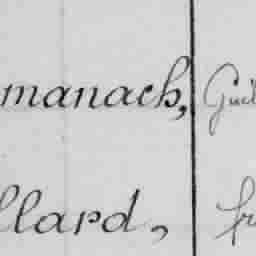 manach, Guil
llard, fr